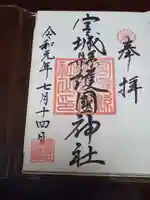 奉拝
宮城縣護國神社
令和元年七月十四日